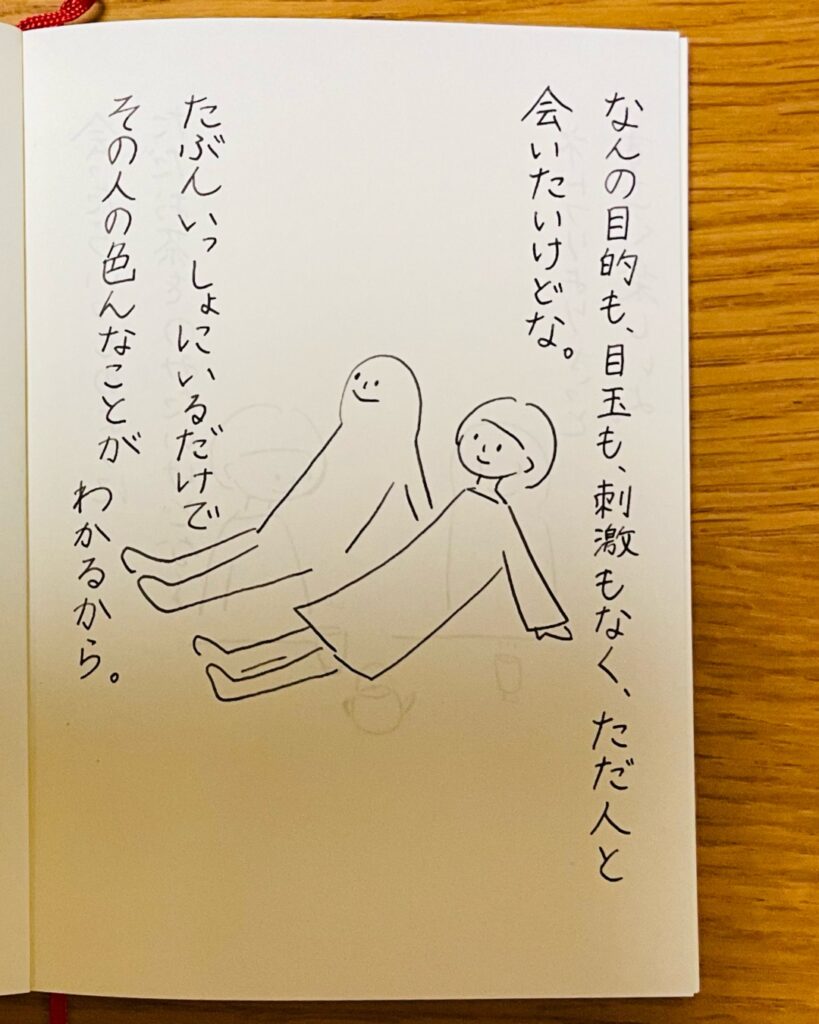 なんの目的も、目玉も、刺激もなく、ただ人と
会いたいけどな。
たぶんいっしょにいるだけで
その人の色んなことが
わかるから。